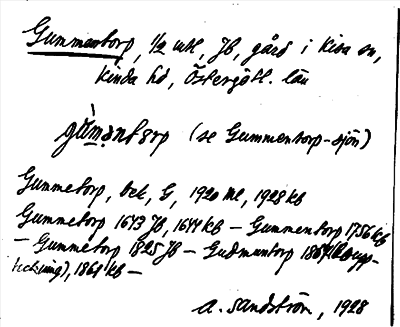 Gummentorp, 1/2 mtl, Jb, gård i Kisa sn,
Kinda hd, Östergötl. län
gùməntɔrp (se Gummentorp-sjön)
Gummetorp, bet, G, 1920 ml, 1928 kb
Gummetorp 1643 Jb, 1644 kb – Gummentorp 1756 kb
– Gummetorp 1825 Jb – Gudmuntorp 1864 (
teckning), 1868 kb –
A. Sandström, 1928